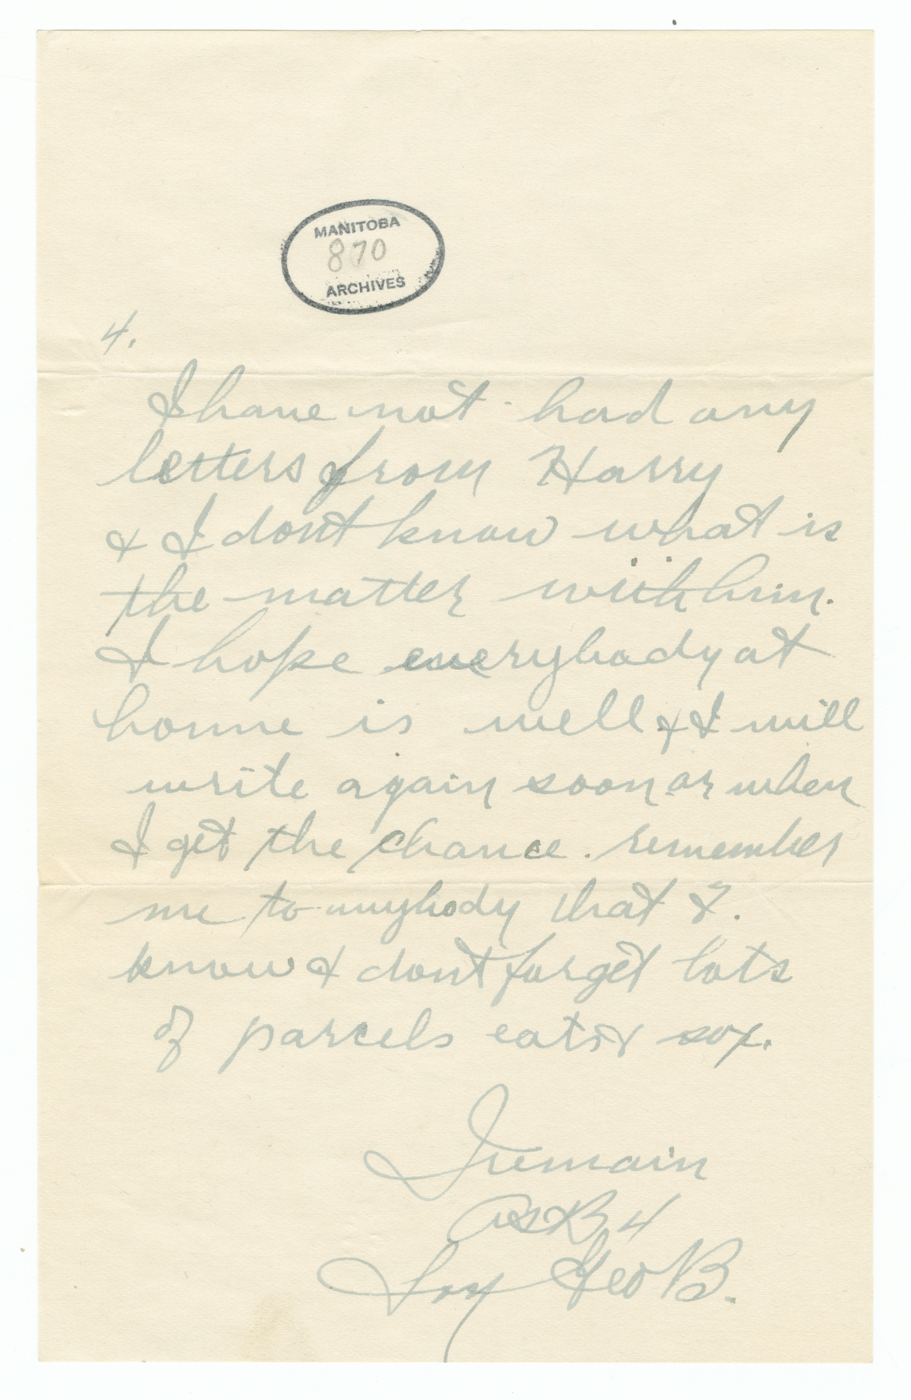 MANITOBA
870
ARCHIVES
4.
I have not had any
letters from Harry
& I dont know what is
the matter with him.
I hope everybody at
home is well & I will
write again soon or when
I get the chance. remember
me to anybody that I.
know & dont forget lots
of parcels eats & sox.
I remain
as B4
Geo B.